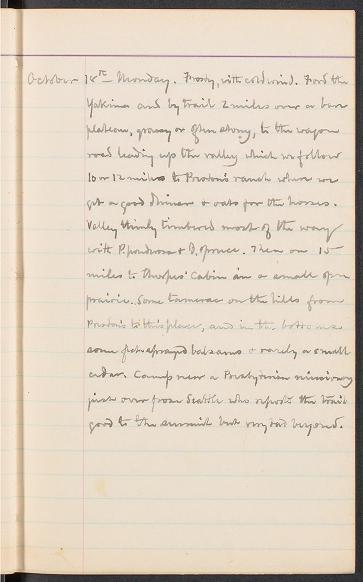 October 18th Monday. Frosty, with cold wind. Ford the
Yakima and by trail 2 miles over a bare
plateau, grassy or often stony, to the wagon
road leading up the valley which we follow
10 or 12 miles to ranch where we
get a good dinner & oats for the horses.
Valley thinly timbered most of the way
with P. ponderosa & D. spruce. Then on 15
miles to Thorpes' Cabin in a small open
prairie. Some tamarac on the hills from
to this place, and in the bottoms
some balsams & rarely a small
cedar. Camp near a Presbyterian missionary
just over from Seattle who reports the trail
good to the summit but very bad beyond.